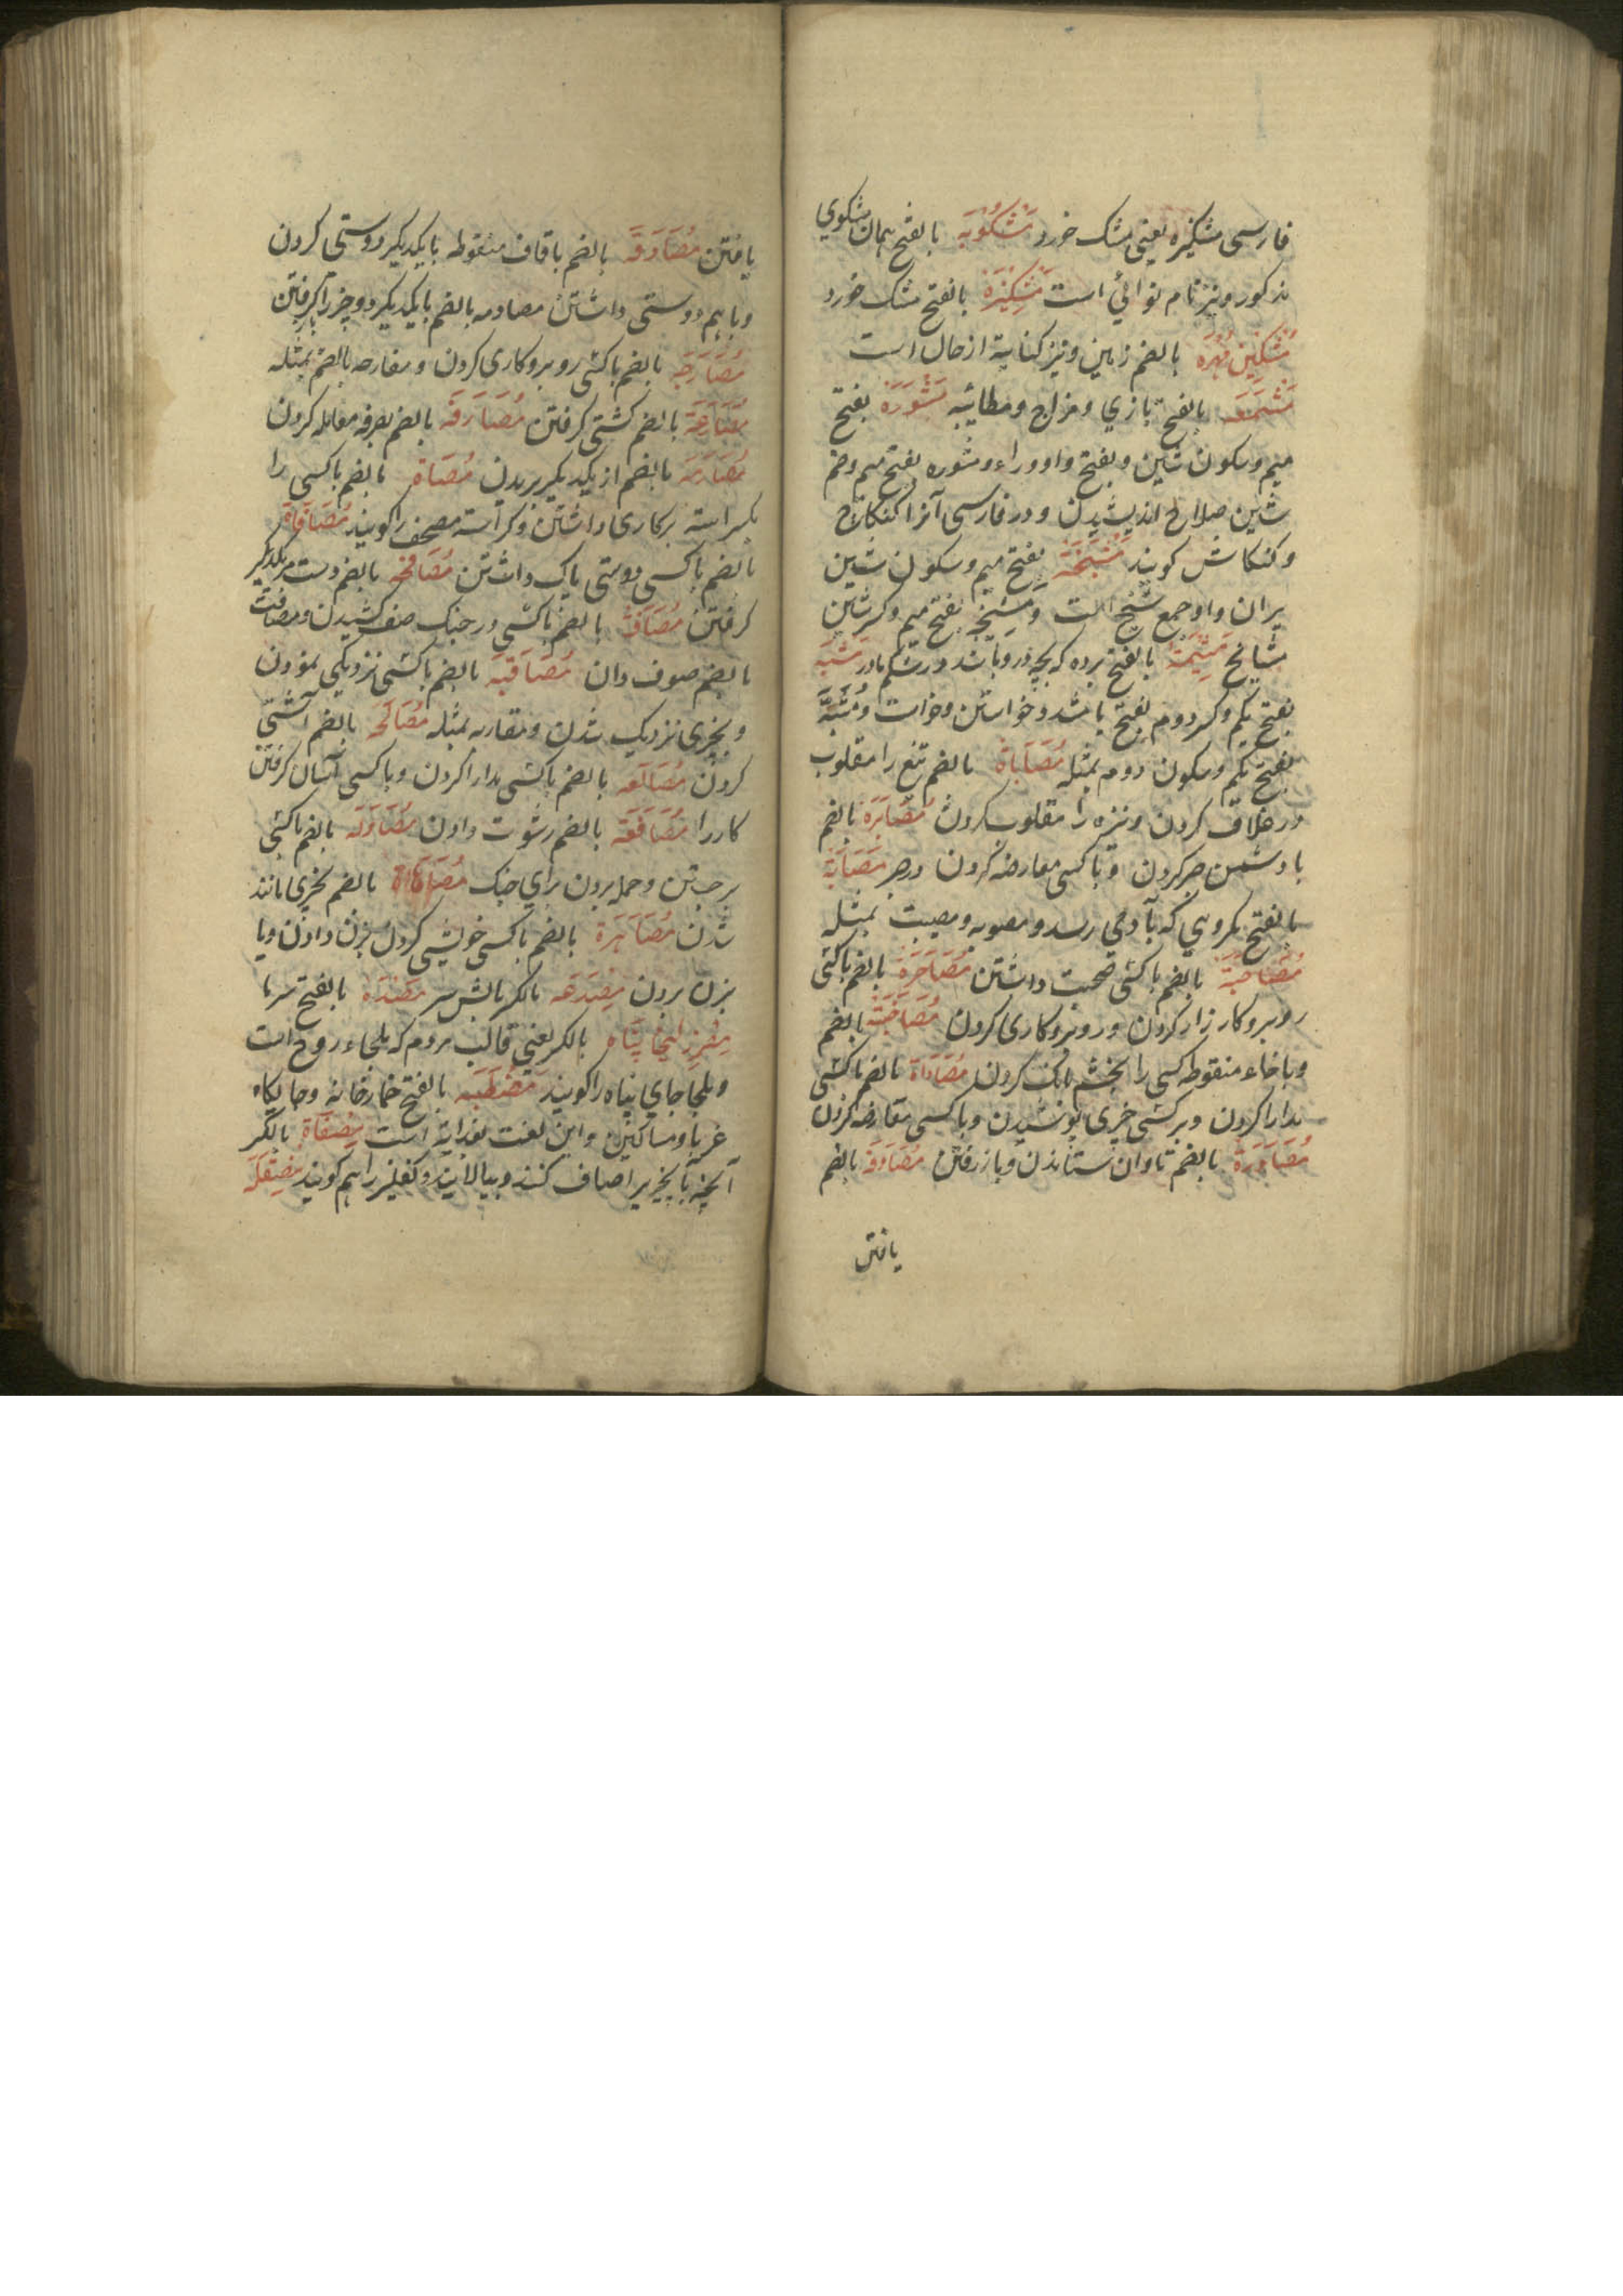 فارسی مشکیزه یعنی مشک خورد مشکویه بالفتح همان مشکوی
مذکور و نیز نام نوائی است مشکیزه بالفتح مشک خورد
مشکین مهره بالضم زمین و نیز کنایة از خال است
بالفتح بازی و مزاح و مطائبه مشورة بفتح
میم و سکون شین و بفتح واو و راء و مشوره بفتح میم و ضم
شین صلاح اندیشیدن و در فارسی آنرا کنکاج
و کنکاش کویند مشیخة بفتح میم و سکون شین
پیران و او جمع شیخ است و مشیخه بفتح میم و کسر شین
مشایخ مشیمة بالفتح پرده که بچه درو باشد در شکم مادر مشیة
بفتح یکم و کسر دوم بفتح یا مشدد خواستن و خواست و مشیة
بفتح یکم و سکون دوم بمثله مصاباة بالضم تیغ را مقلوب
در غلاف کردن و نیزه را مقلوب کردن مصابرة بالضم
با دشمن صبر کردن و با کسی معارضه کردن در صبر مصابة
بالفتح مکروهی که بآدمی رسد و مصوبه و مصیبت بمثله
مصاحبة بالضم با کسی صحبت داشتن مصاحرة بالضم با کسی
روبرو کارزار کردن و روبرو کاری کردن مصاخبة بالضم
و با خاء منقوطه کسی را بخشم بانک کردن مصاداة بالضم با کسی
مدارا کردن و بر کسی چیزی پوشیدن و با کسی معارضه کردن
مصادرة بالضم تاوان ستاندن و باز رفتن مصادفة بالضم
یافتن
یافتن مصادقة بالضم با قاف منقوطه بایکدیکر دوستی کردن
و باهم دوستی داشتن مصادمه بالضم بایکدیکر دو چیز را کرفتن
مصارحة بالضم با کسی روبرو کاری کردن و مقارحه بالضم بمثله
مصارعة بالضم کشتی کرفتن مصارفة بالضم بصرفه معامله کردن
مصارمة بالضم از یکدیکر بریدن بالضم با کسی را
بکراسته بر کاری داشتن و کراسته مصحف را کویند مصافاة
بالضم با کسی دوستی پاک داشتن مصافحه بالضم دست یکدیکر
کرفتن مصاف بالضم با کسی در جنک صف کشیدن و مصافت
بالضم صوف دان مصاقبة بالضم با کسی نزدیکی نمودن
و بچیزی نزدیک شدن و مقاربه بمثله مصالحه بالضم آشتی
کردن مصانعه بالضم با کسی مدارا کردن و با کسی آسان کرفتن
کار را بالضم رشوت دادن مصاوله بالضم با کسی
بر جستن و حمله بردن برای جنک مصاهاة بالضم بچیزی مانند
شدن مصاهرة بالضم با کسی خویشی کردن بزن دادن و یا
بزن بردن مصدغه بالکسر بالش سر بالفتح سرما
بالکسر یعنی قالب مردم که ملجاء روح است
و ملجا جای پناه را کویند مصطبه بالفتح خمارخانه و جایکاه
غربا و مساکین و این لغت بغدادیه است مصفاة بالکسر
آنچه بآن چیز را صاف کنند و بپالایند و کفلیز را هم کویند مصقلة